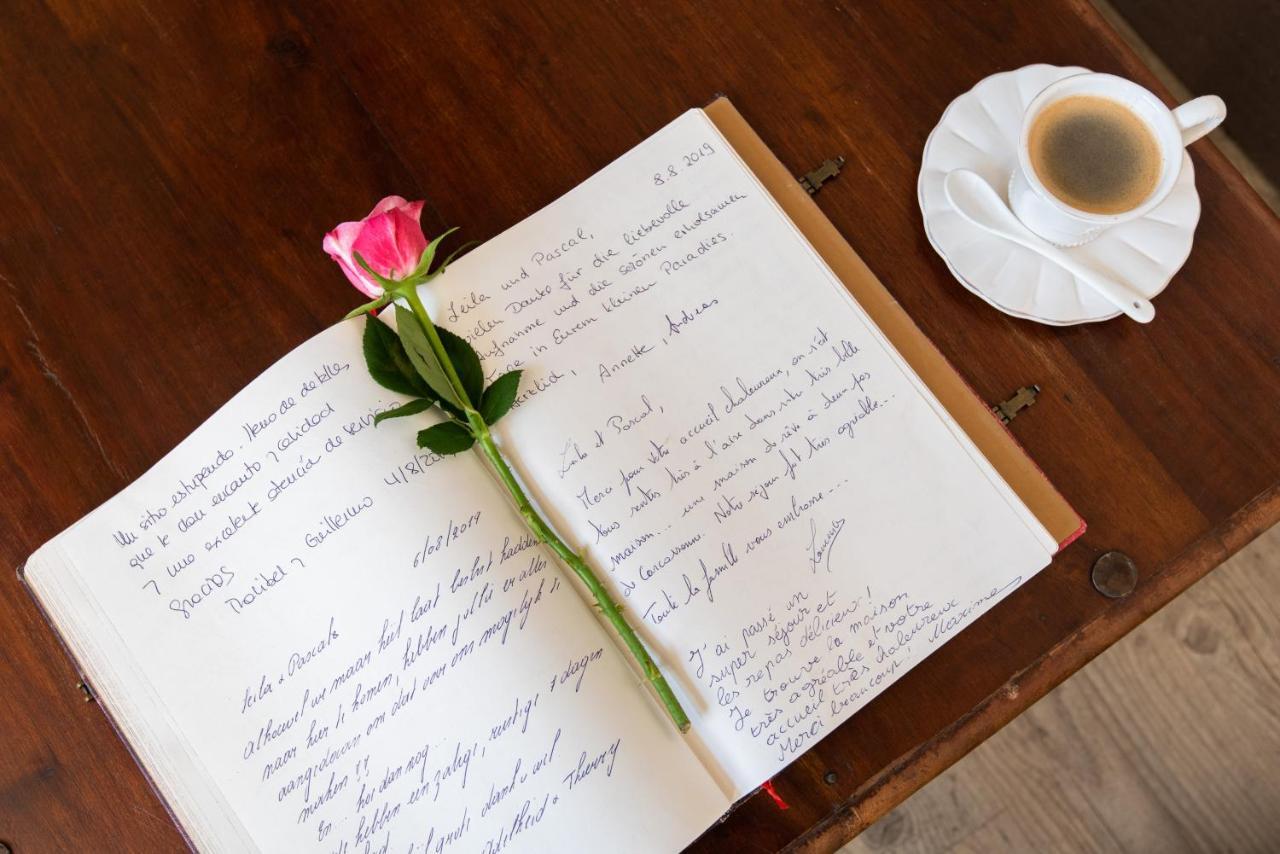 Un sitio estupendo. lleno de detalles
que le dan encanto y calidad
y una excelente atención de servicio
gracias
Maribel y Guillermo 4/8/20
6/08/2019
Leila + Pascal
alhoewel we maar heel laat beslist hadden
naar hier te komen, hebben jullie er alles
aangedaan om dat voor ons mogelijk te
maken !!
En hoe dan nog...
We hebben een zalige, rustige 7 dagen
grote dank u wel
Adelheid + Thierry
8.8.2019
Leila und Pascal,
vielen Danke für die liebevolle
Aufnahme und die schönen erholsamen
Tage in Eurem kleinen Paradies.
Herzlich, Annette, Andreas
Leila et Pascal,
Merci pour votre accueil chaleureux, on s'est
tous sentis très à l'aise dans votre très belle
maison... une maison de rêve à deux pas
de Carcassonne. Notre séjour fut très agréable...
Toute la famille vous embrasse...
J'ai passé un
super séjour et
les repas délicieux!
Je trouve la maison
très agréable et votre
accueil très chaleureux
Merci beaucoup! Maxime